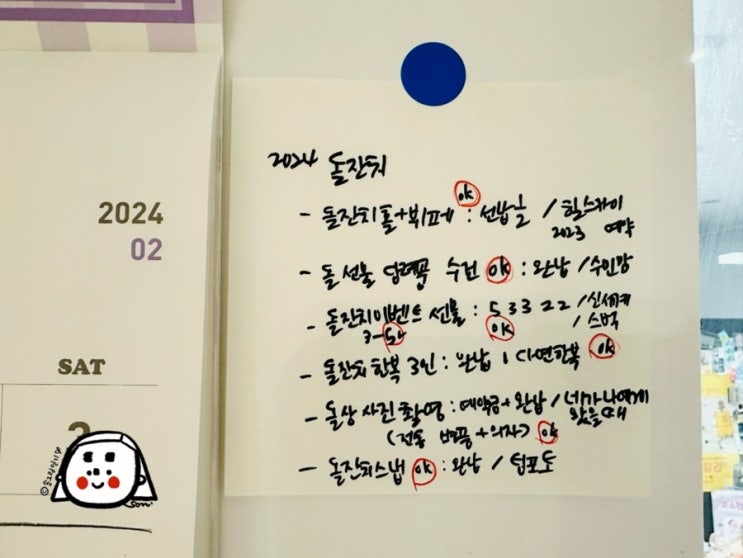 2024
02
SAT
2024 돌잔치
ok
- 돌잔치홀+뷔페 : 선납금 / 힐스카이
2023 예약
- 돌 선물 답례품 수건 ok : 완납 / 수민맘
- 돌잔치이벤트 선물 : 5 3 3 2 2 / 신세계
7-50 ok / 스벅
- 돌잔치 한복 3인 : 완납 / 다연한복 ok
- 돌상 사진 촬영 : 예약금 + 완납 / 네가나에게
왔을때
(전통 병풍 + 의자) ok
- 돌잔치스냅 ok : 완납 /